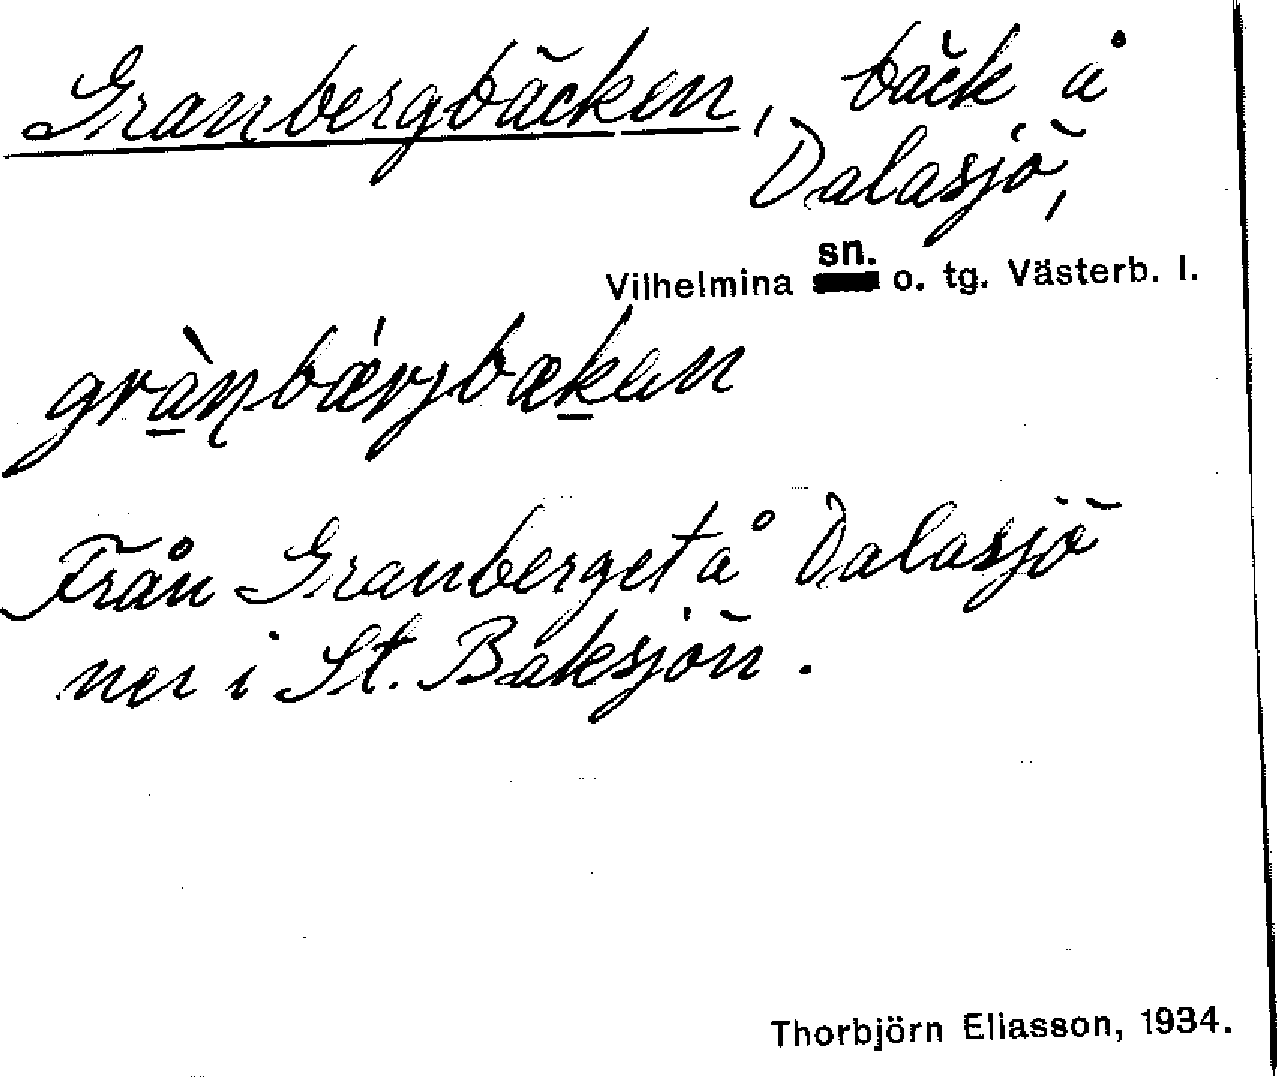 Granbergbäcken, bäck å
Dalasjö,
Vilhelmina sn. o. tg. Västerb. l.
grànbǽrjbæken
Från Granberget å Dalasjö
ner i St. Baksjön.
Thorbjörn Eliasson, 1934.